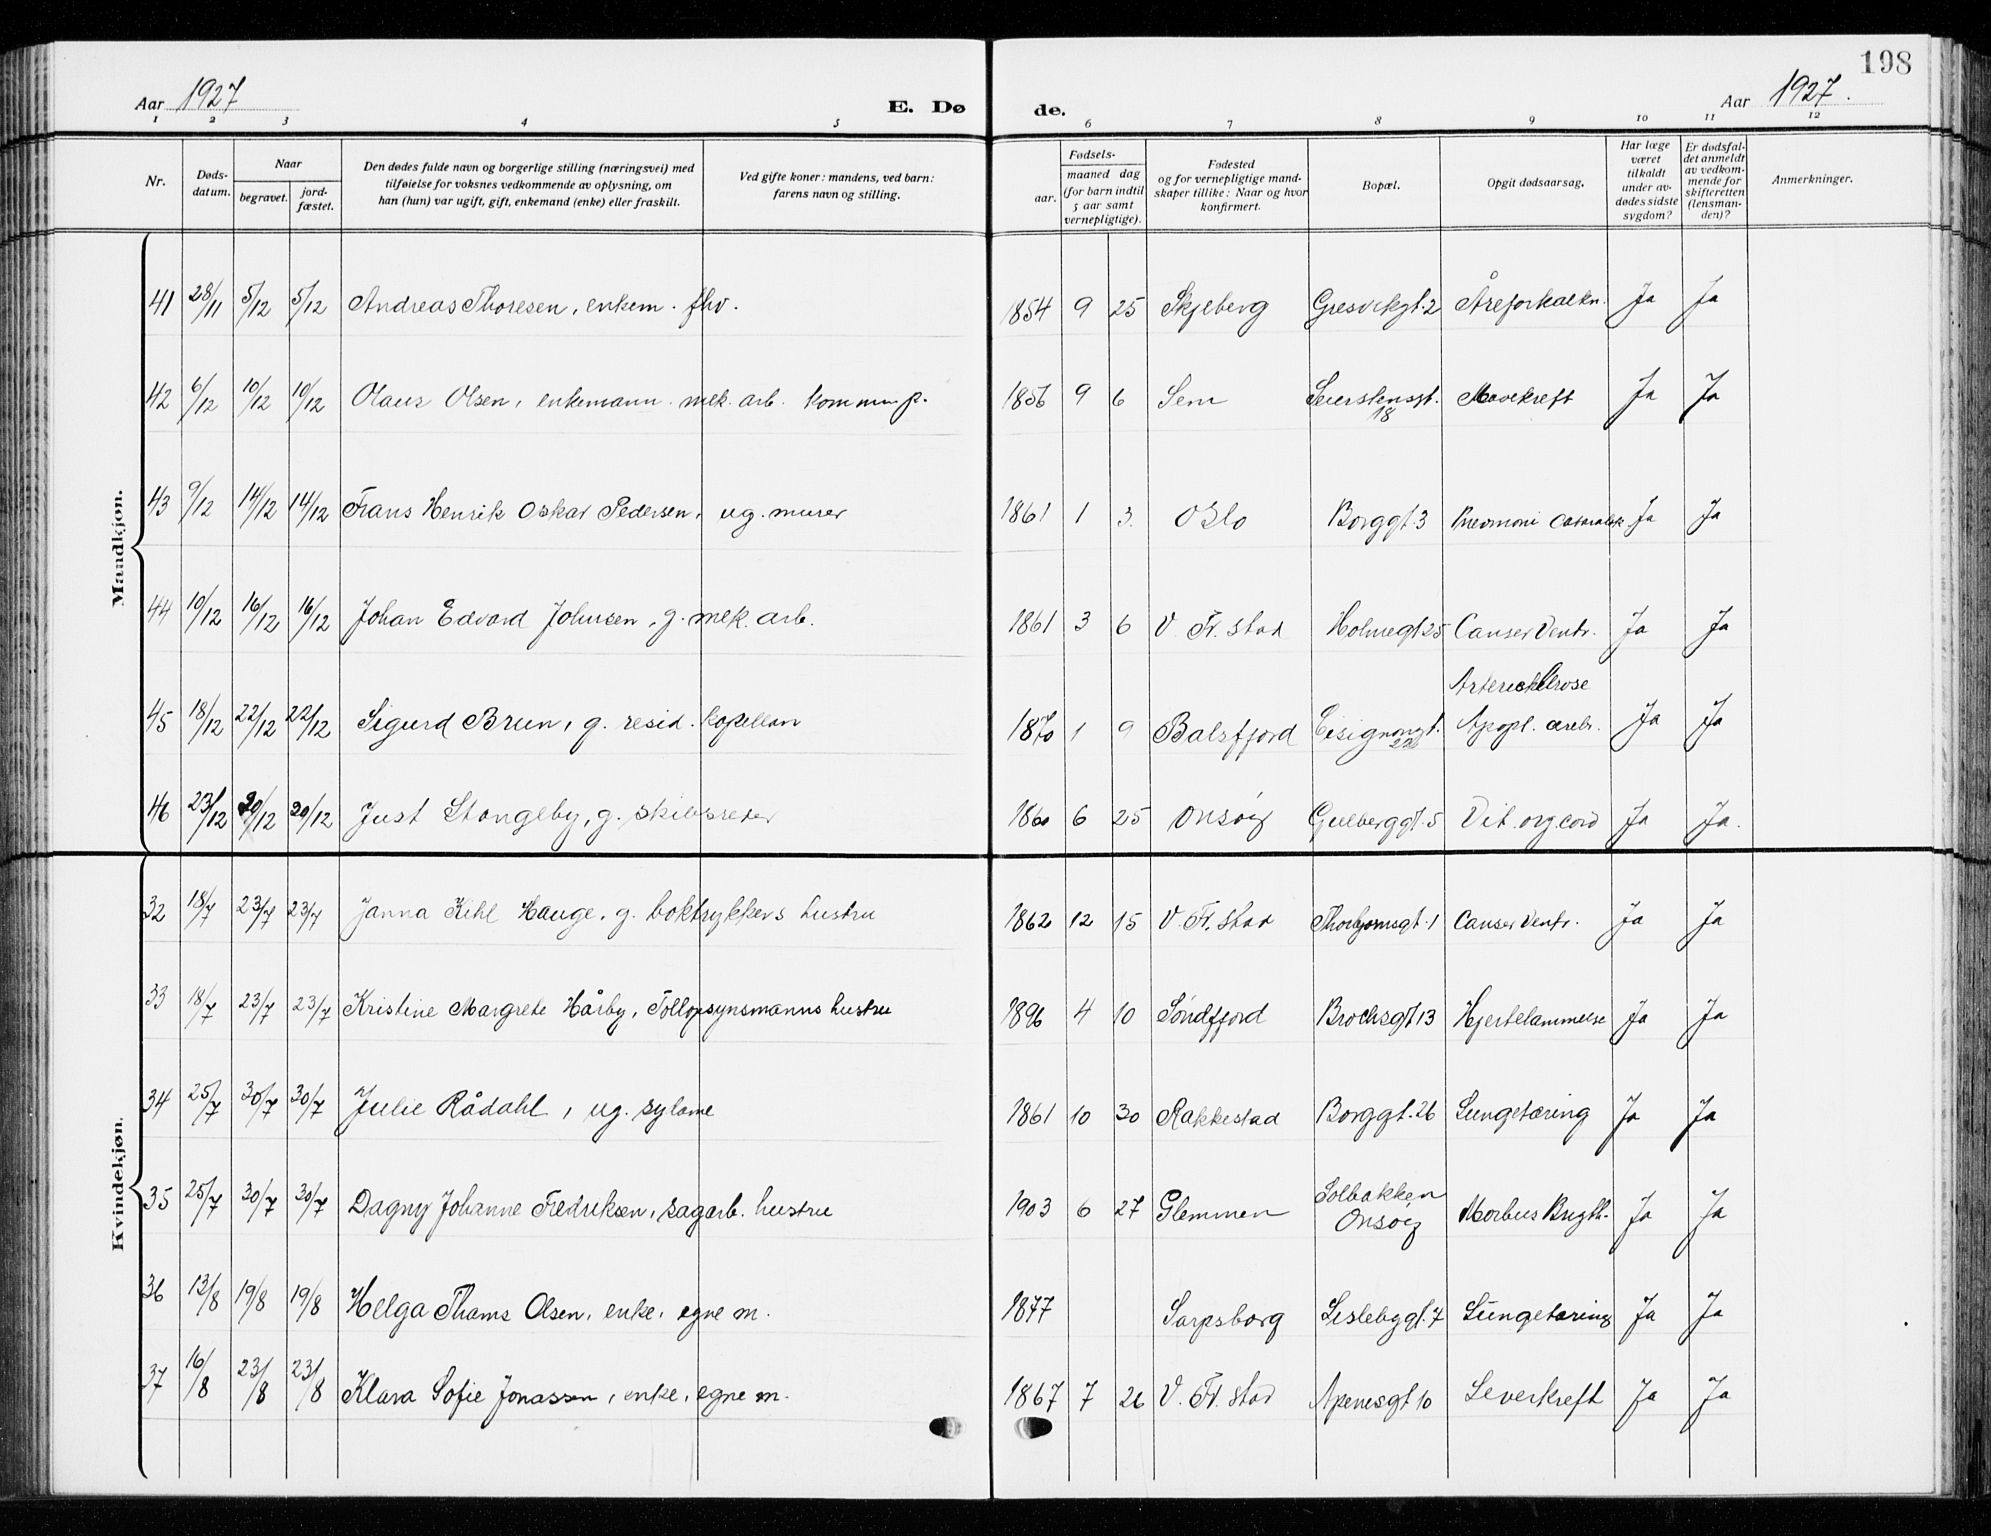 198
Aar 1927
E. Dø
de.
Aar 1927.
1 2 3 4 5 6 7 8 9 10 11 12
Nr.
Døds-
datum.
Naar
begravet.
jord-
fæstet.
Den dødes fulde navn og borgerlige stilling (næringsvei) med
tilføielse for voksnes vedkommende av oplysning, om
han (hun) var ugift, gift, enkemand (enke) eller fraskilt.
Ved gifte koner: mandens, ved barn:
farens navn og stilling.
Fødsels-
aar.
maaned dag
(for barn indtil
5 aar samt
vernepligtige).
Fødested
og for vernepligtige mand-
skaper tillike: Naar og hvor
konfirmert.
Bopæl.
Opgit dødsaarsag.
Har læge
været
tilkaldt
under av-
dødes sidste
sygdom?
Er dødsfal-
det anmeldt
av vedkom-
mende for
skifteretten
(lensman-
den)?
Anmerkninger.
Mandkjøn.
41 28/11 5/12 5/12 Andreas Thoresen, enkem. fhv. 1854 9 25 Skjeberg Gresvikgt. 2 Åreforkalkn. Ja Ja
42 6/12 10/12 10/12 Olaus Olsen, enkemann. mek. arb. komm. p. 1856 9 6 Sem Seierstensgt. 18 Mavekreft Ja Ja
43 9/12 14/12 14/12 Frans Henrik Oskar Pedersen, ug. murer 1861 1 3. Oslo Borggt. 3 Pnevmoni Ja Ja
44 10/12 16/12 16/12 Johan Edvard Johnsen, g. mek. arb. 1861 3 6 V. Fr. stad Holmegt 25 Canser Ventr. Ja Ja
45 18/12 22/12 22/12 Sigurd Brun, g. resid. kapellan 1870 1 9 Balsfjord Apopl. cerebr. Ja Ja
46 23/12 30/12 30/12 Just Stangeby, g. skibsreder 1860 6 25 Onsøy Gulberggt. 5 Vit. org. cord Ja Ja.
Kvindekjøn.
32 18/7 23/7 23/7 Janna Kihl Hauge, g. boktrykkers hustru 1862 12 15 V. Fr. stad Thorbjørnsgt. 1 Canser Ventr. Ja Ja
33 18/7 23/7 23/7 Kristine Margrete Hårby, Tollopsynsmanns hustru 1896 4 10 Søndfjord Brochsgt 13 Hjertelammelse Ja Ja
34 25/7 30/7 30/7 Julie Rådahl, ug. sydame 1861 10 30 Rakkestad Borggt. 26 Lungetæring Ja Ja
35 25/7 30/7 30/7 Dagny Johanne Fredriksen, sagarb. hustru 1903 6 27 Glemmen Solbakken Onsøy Morbus Brigth. Ja Ja
36 13/8 19/8 19/8 Helga Thams Olsen, enke, egne m. 1877 Sarpsborg Lislebygt. 7 Lungetæring Ja Ja
37 16/8 23/8 23/8 Klara Sofie Jonassen, enke, egne m. 1867 7 26 V. Fr. stad Apenesgt 10 Leverkreft Ja Ja